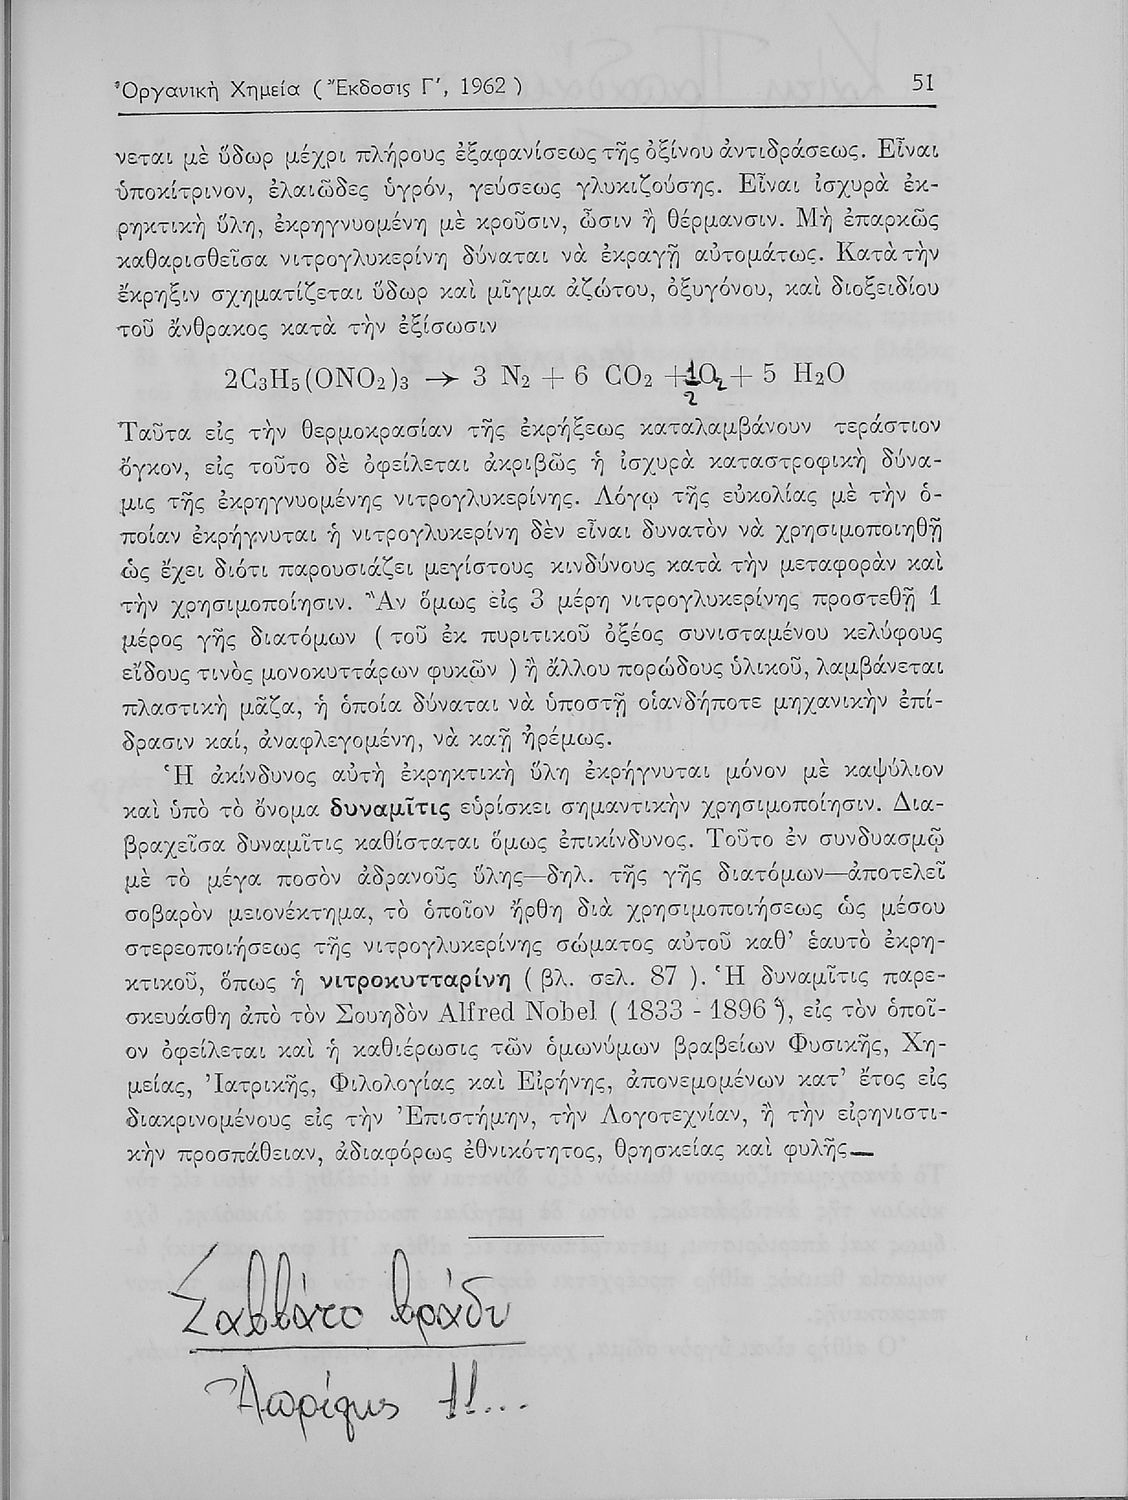 Ὀργανικὴ Χημεία ( Ἔκδοσις Γ′, 1962 ) 51
νεται μὲ ὕδωρ μέχρι πλήρους ἐξαφανίσεως τῆς ὀξίνου ἀντιδράσεως. Εἶναι
ὑποκίτρινον, ἐλαιῶδες ὑγρόν, γεύσεως γλυκιζούσης. Εἶναι ἰσχυρὰ ἐκ-
ρηκτικὴ ὕλη, ἐκρηγνυομένη μὲ κροῦσιν, ὦσιν ἢ θέρμανσιν. Μὴ ἐπαρκῶς
καθαρισθεῖσα νιτρογλυκερίνη δύναται νὰ ἐκραγῇ αὐτομάτως. Κατὰ τὴν
ἔκρηξιν σχηματίζεται ὕδωρ καὶ μῖγμα ἀζώτου, ὀξυγόνου, καὶ διοξειδίου
τοῦ ἄνθρακος κατὰ τὴν ἐξίσωσιν
2C₃H₅(ONO₂)₃ → 3 N₂ + 6 CO₂ + ½O₂ + 5 H₂O
Ταῦτα εἰς τὴν θερμοκρασίαν τῆς ἐκρήξεως καταλαμβάνουν τεράστιον
ὄγκον, εἰς τοῦτο δὲ ὀφείλεται ἀκριβῶς ἡ ἰσχυρὰ καταστροφικὴ δύνα-
μις τῆς ἐκρηγνυομένης νιτρογλυκερίνης. Λόγῳ τῆς εὐκολίας μὲ τὴν ὁ-
ποίαν ἐκρήγνυται ἡ νιτρογλυκερίνη δὲν εἶναι δυνατὸν νὰ χρησιμοποιηθῇ
ὡς ἔχει διότι παρουσιάζει μεγίστους κινδύνους κατὰ τὴν μεταφορὰν καὶ
τὴν χρησιμοποίησιν. Ἂν ὅμως εἰς 3 μέρη νιτρογλυκερίνης προστεθῇ 1
μέρος γῆς διατόμων ( τοῦ ἐκ πυριτικοῦ ὀξέος συνισταμένου κελύφους
εἴδους τινὸς μονοκυττάρων φυκῶν ) ἢ ἄλλου πορώδους ὑλικοῦ, λαμβάνεται
πλαστικὴ μᾶζα, ἡ ὁποία δύναται νὰ ὑποστῇ οἱανδήποτε μηχανικὴν ἐπί-
δρασιν καί, ἀναφλεγομένη, νὰ καῇ ἠρέμως.
Ἡ ἀκίνδυνος αὐτὴ ἐκρηκτικὴ ὕλη ἐκρήγνυται μόνον μὲ καψύλιον
καὶ ὑπὸ τὸ ὄνομα δυναμῖτις εὑρίσκει σημαντικὴν χρησιμοποίησιν. Δια-
βραχεῖσα δυναμῖτις καθίσταται ὅμως ἐπικίνδυνος. Τοῦτο ἐν συνδυασμῷ
μὲ τὸ μέγα ποσὸν ἀδρανοῦς ὕλης—δηλ. τῆς γῆς διατόμων—ἀποτελεῖ
σοβαρὸν μειονέκτημα, τὸ ὁποῖον ἤρθη διὰ χρησιμοποιήσεως ὡς μέσου
στερεοποιήσεως τῆς νιτρογλυκερίνης σώματος αὐτοῦ καθ’ ἑαυτὸ ἐκρη-
κτικοῦ, ὅπως ἡ νιτροκυτταρίνη ( βλ. σελ. 87 ). Ἡ δυναμῖτις παρε-
σκευάσθη ἀπὸ τὸν Σουηδὸν Alfred Nobel ( 1833 - 1896 ), εἰς τὸν ὁποῖ-
ον ὀφείλεται καὶ ἡ καθιέρωσις τῶν ὁμωνύμων βραβείων Φυσικῆς, Χη-
μείας, Ἰατρικῆς, Φιλολογίας καὶ Εἰρήνης, ἀπονεμομένων κατ’ ἔτος εἰς
διακρινομένους εἰς τὴν Ἐπιστήμην, τὴν Λογοτεχνίαν, ἢ τὴν εἰρηνιστι-
κὴν προσπάθειαν, ἀδιαφόρως ἐθνικότητος, θρησκείας καὶ φυλῆς—
Σαββάτο βράδυ